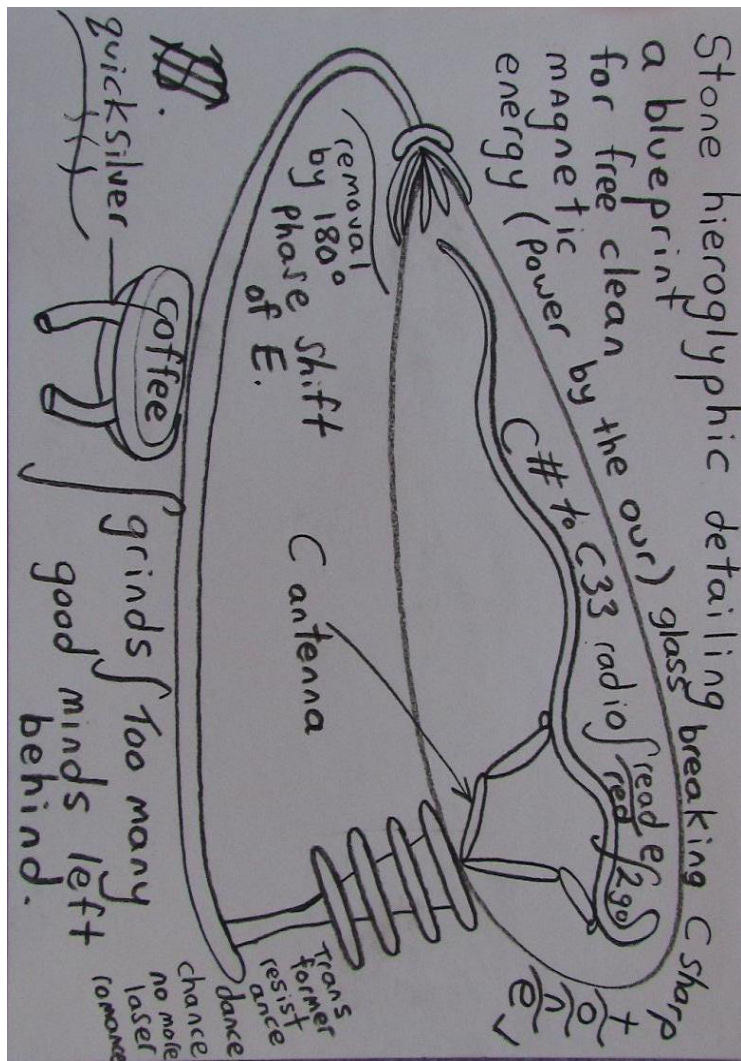 Stone hieroglyphic detailing glass breaking C sharp
a blueprint
for free clean
magnetic
energy (power by the our)
tone
C# to C33 radio
read e
red
2go
removal
by 180°
phase shift
of E.
C antenna
Trans
former
resist
ance
dance
chance
no more
laser
romance
quicksilver
coffee
grinds
Too many
good minds left
behind.